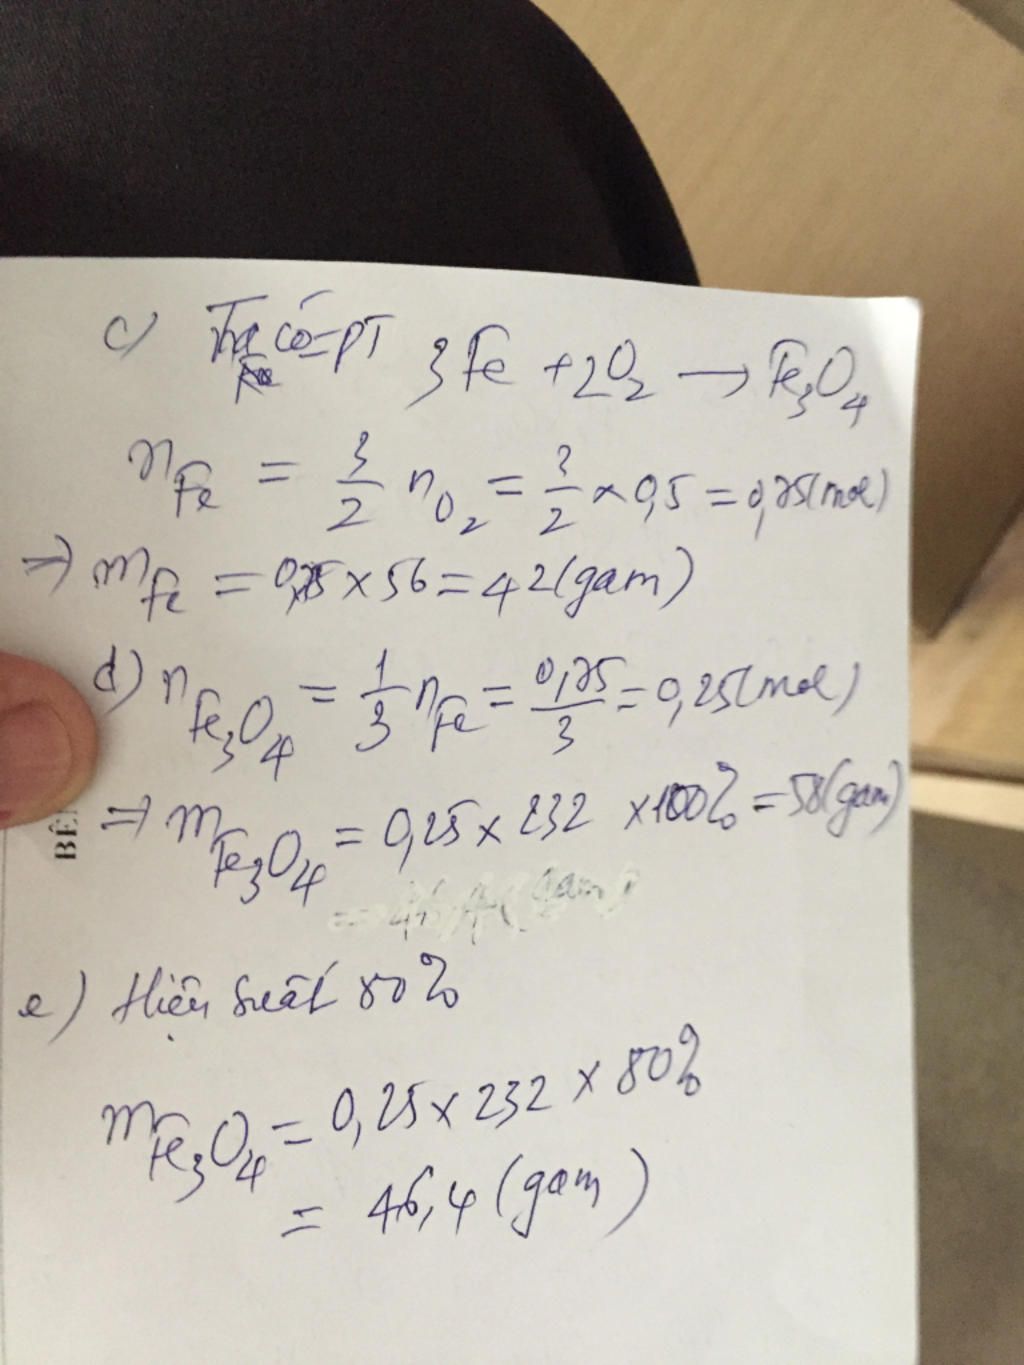 c) Ta có PT 3Fe + 2O₂ → Fe₃O₄
n_Fe = 3/2 n_O₂ = 3/2 × 0,5 = 0,75 (mol)
⇒ m_Fe = 0,75 × 56 = 42 (gam)
d) n_Fe₃O₄ = 1/3 n_Fe = 0,75/3 = 0,25 (mol)
⇒ m_Fe₃O₄ = 0,25 × 232 × 100% = 58 (gam)
= 46,4 (gam)
e) Hiệu suất 80%
m_Fe₃O₄ = 0,25 × 232 × 80%
= 46,4 (gam)